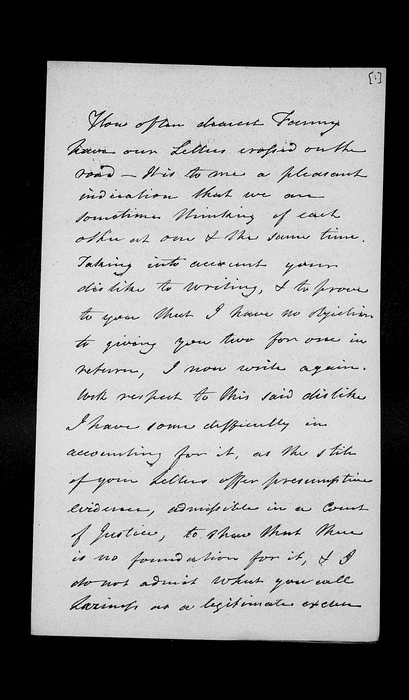 [1]
How often dearest Fanny
have our Letters crossed on the
road — It is to me a pleasant
indication that we are
sometimes thinking of each
other at one & the same time.
Taking into account your
dislike to writing, & to prove
to you that I have no objection
to giving you two for one in
return, I now write again.
With respect to this said dislike
I have some difficulty in
accounting for it, as the stile
of your Letters offer presumptive
evidence, admissible in a Court
of Justice, to shew that there
is no foundation for it, & I
do not admit what you call
Laziness as a legitimate excuse